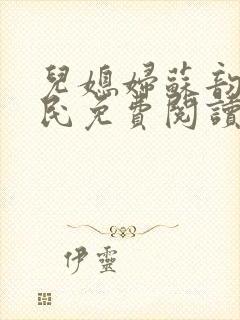 兒媳婦蘇韵
民免費閱讀
伊靈